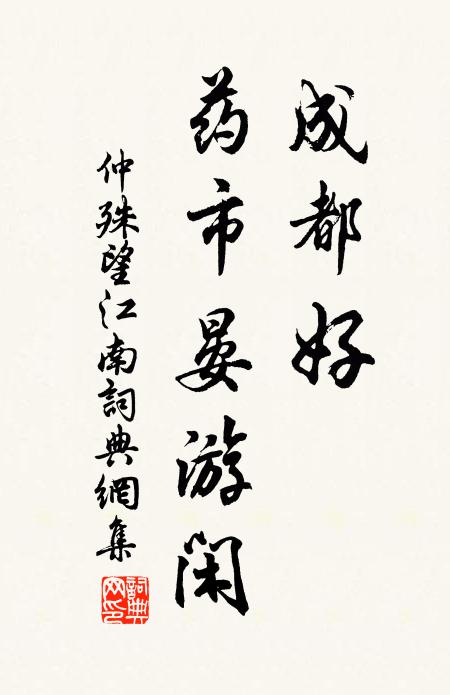 成都好
药市晏游闲
仲殊望江南詞典網集
詞典網印